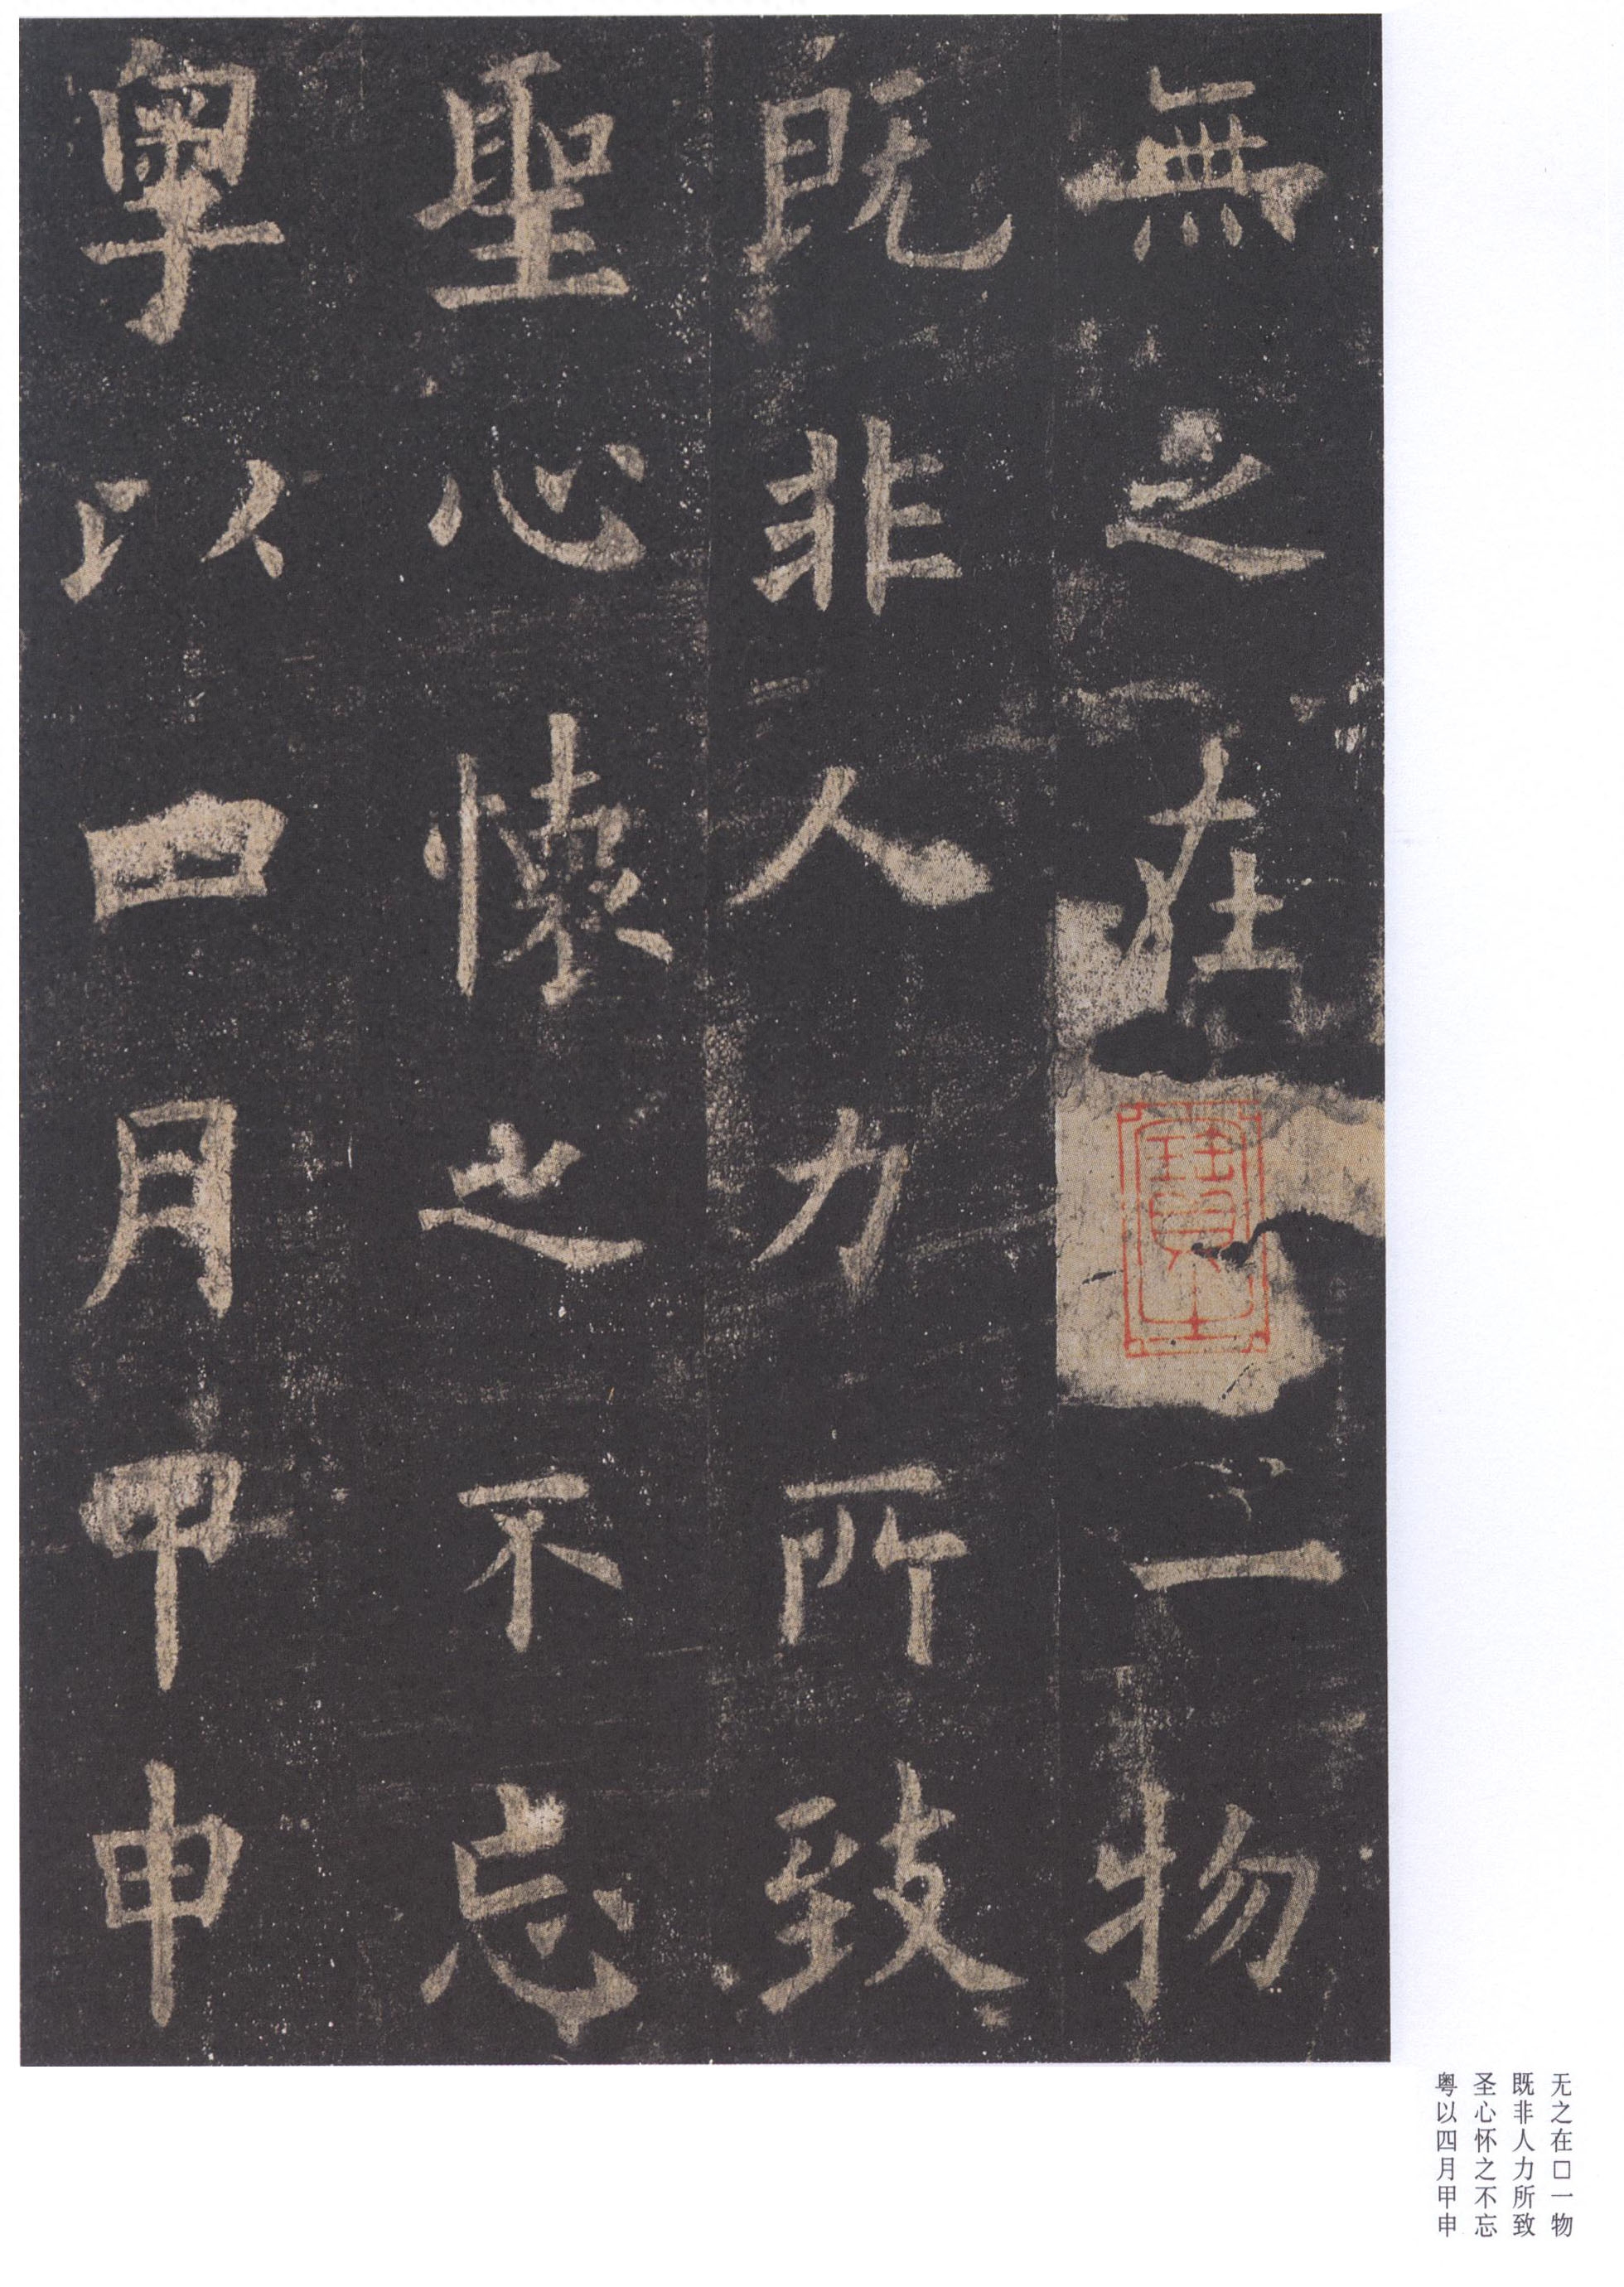 無之在一物
既非人力所致
聖心懐之不忘
粤以四月甲申
无之在□一物
既非人力所致
圣心怀之不忘
粤以四月甲申